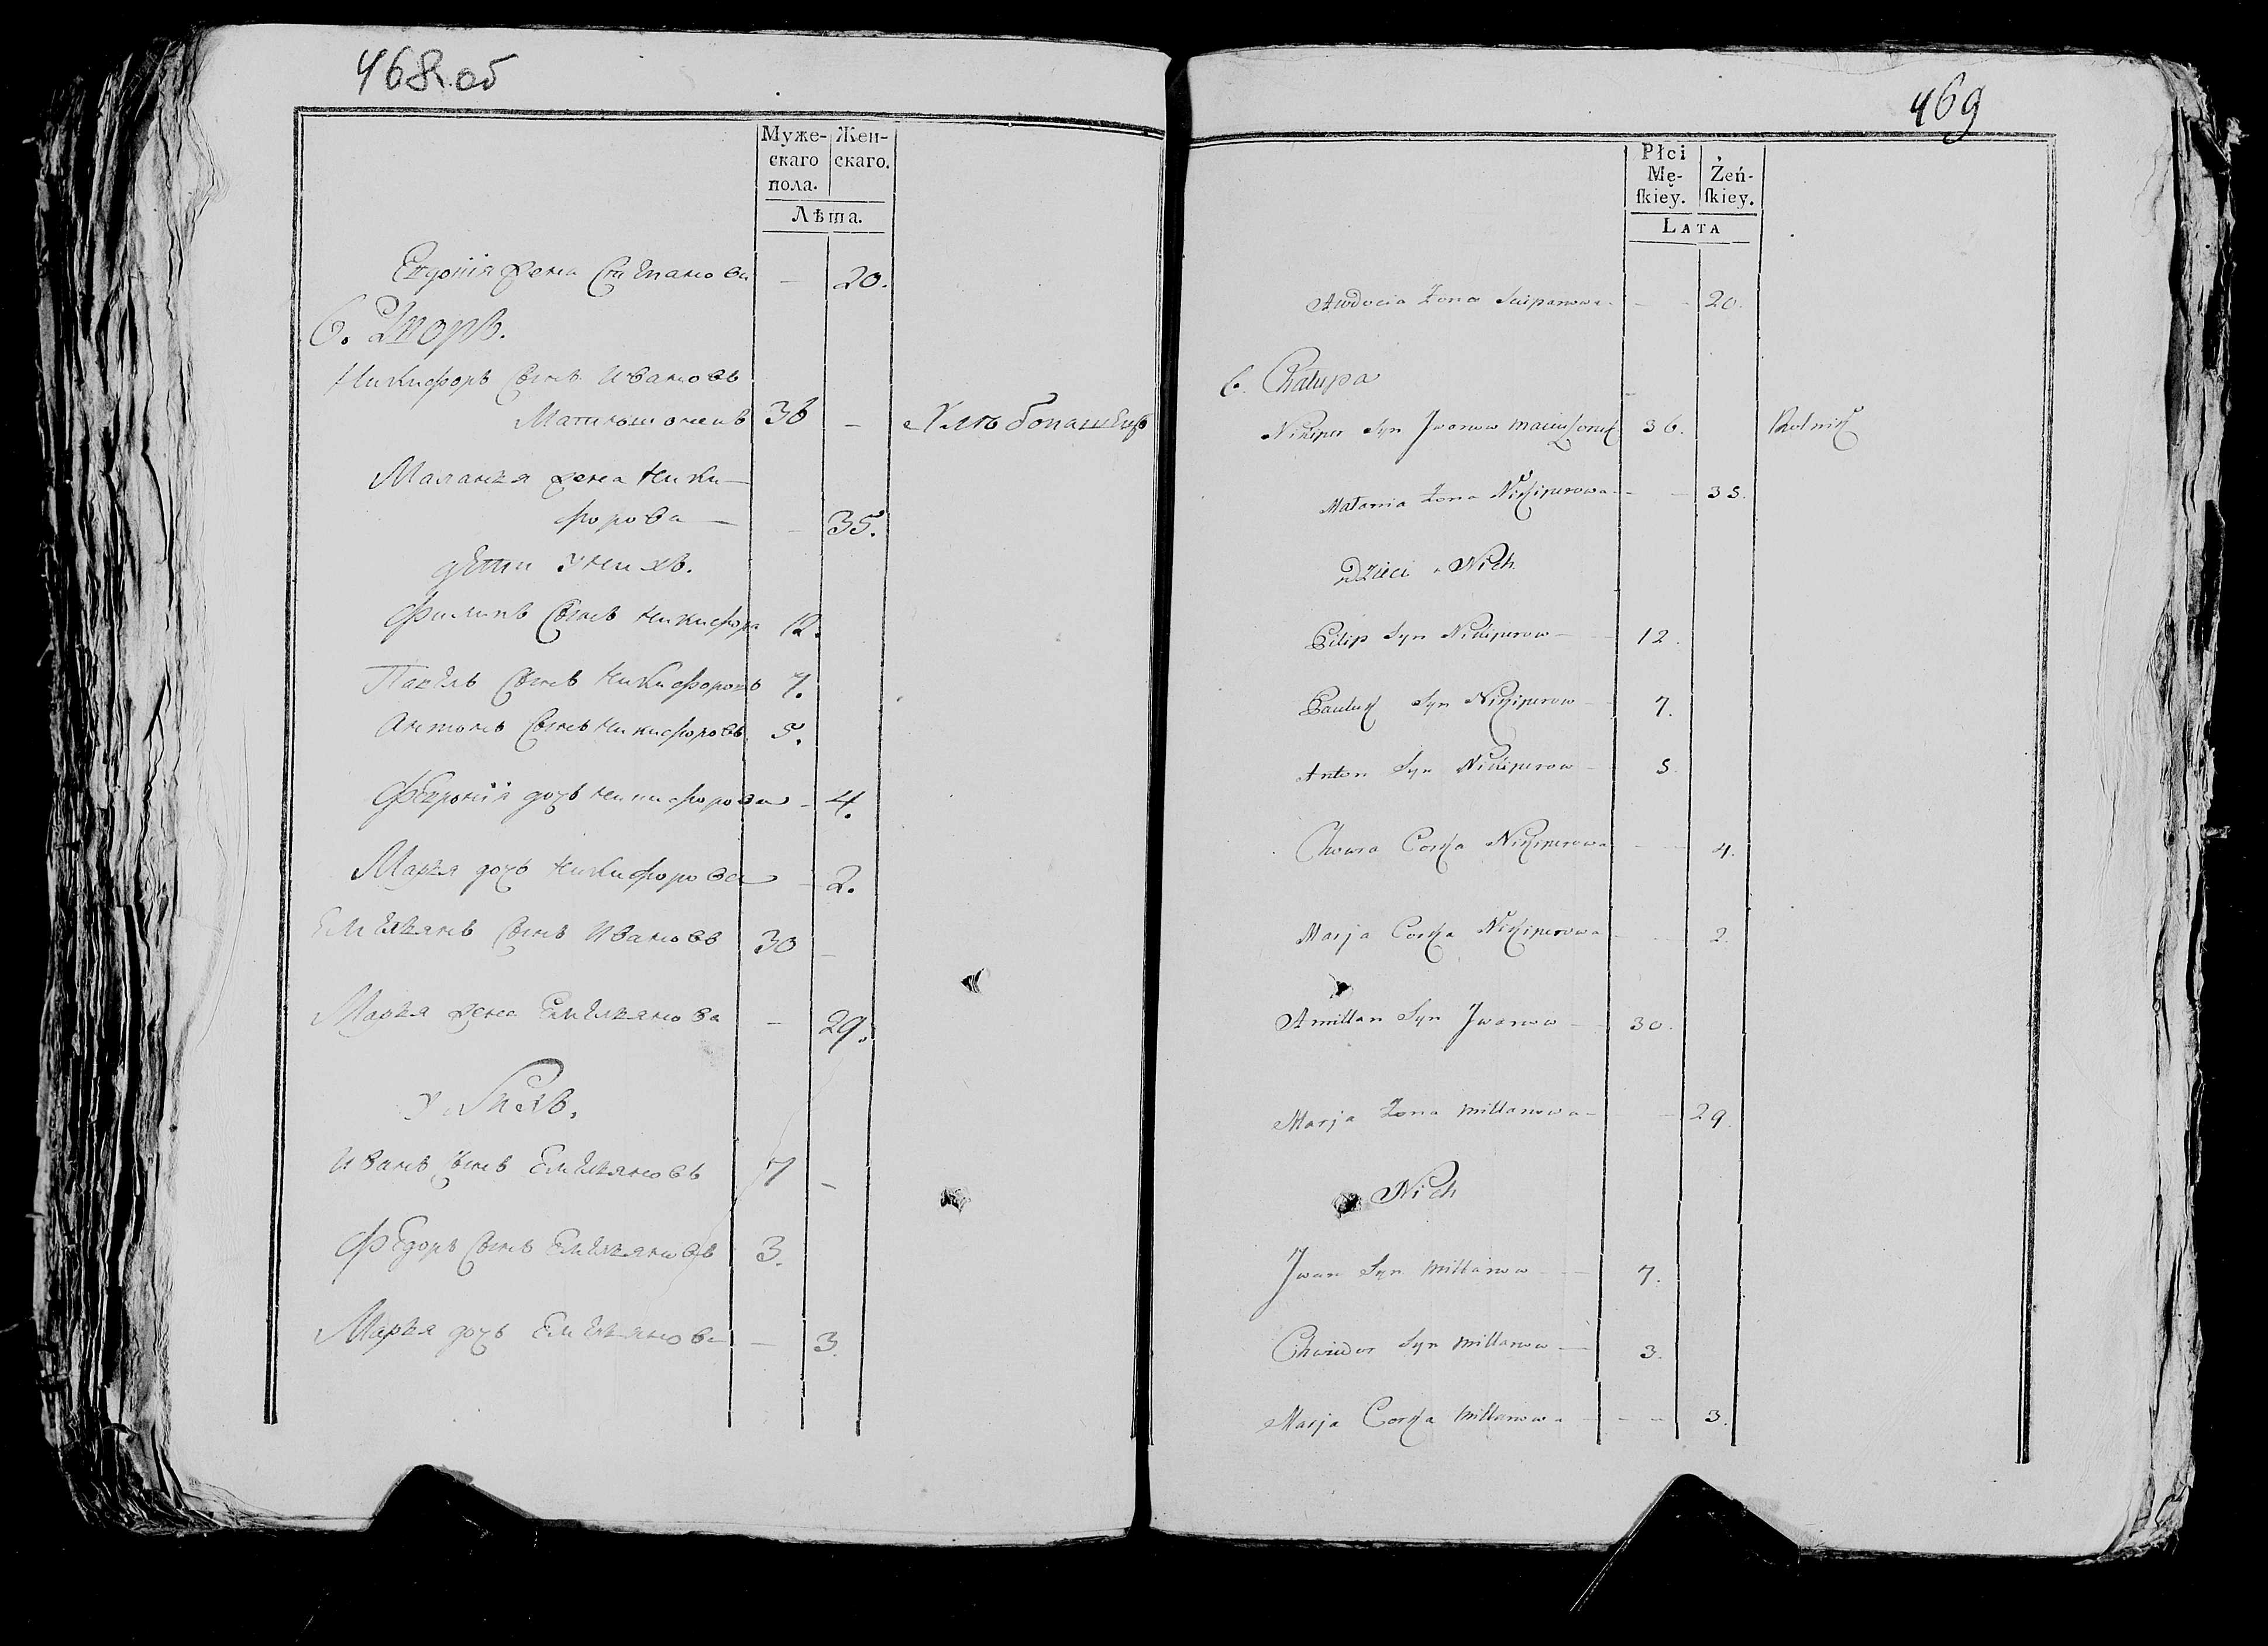 468 об
Муже- Жен-
скаго скаго.
пола.
Лѣта.
жена Степанова — 20.
6. Дворъ.
Никифоръ сынъ Ивановъ
36 — Хлѣбопашецъ
Маланья жена Ники-
форова — — 35.
дѣти у нихъ.
Филипъ сынъ Никифора 12.
Павелъ сынъ Никифоровъ 7.
Антонъ сынъ Никифоровъ 5.
дочь Никифорова — 4.
Марья дочь Никифорова — 2.
Емельянъ сынъ Ивановъ 30 —
Марья жена Емельянова — 29.
у нихъ.
Иванъ сынъ Емельяновъ 7 —
Федоръ сынъ Емельяновъ 3.
Марья дочь Емельянова — 3.
469
Płci
Mę- Żeń-
ſkiey. ſkiey.
LATA
Awdocia Żona Sciepanowa — — 20.
6. Chałupa
Nikiper Syn Jwanow 36. Rolnik
Małania Żona Nikiperowa — — 35.
Dzieci u Nich
Pilip Syn Nikiperow — 12.
Pauluk Syn Nikiperow — 7.
Anton Syn Nikiperow — 5.
Chwura Corka Nikiperowa — — 4.
Marja Corka Nikiperowa — — 2.
Amillan Syn Jwanow — 30.
Marja Żona Millanowa — — 29.
Nich
Jwan Syn Millanow — 7.
Chwiedor Syn Millanow — 3.
Marja Corka Millanowa — — 3.